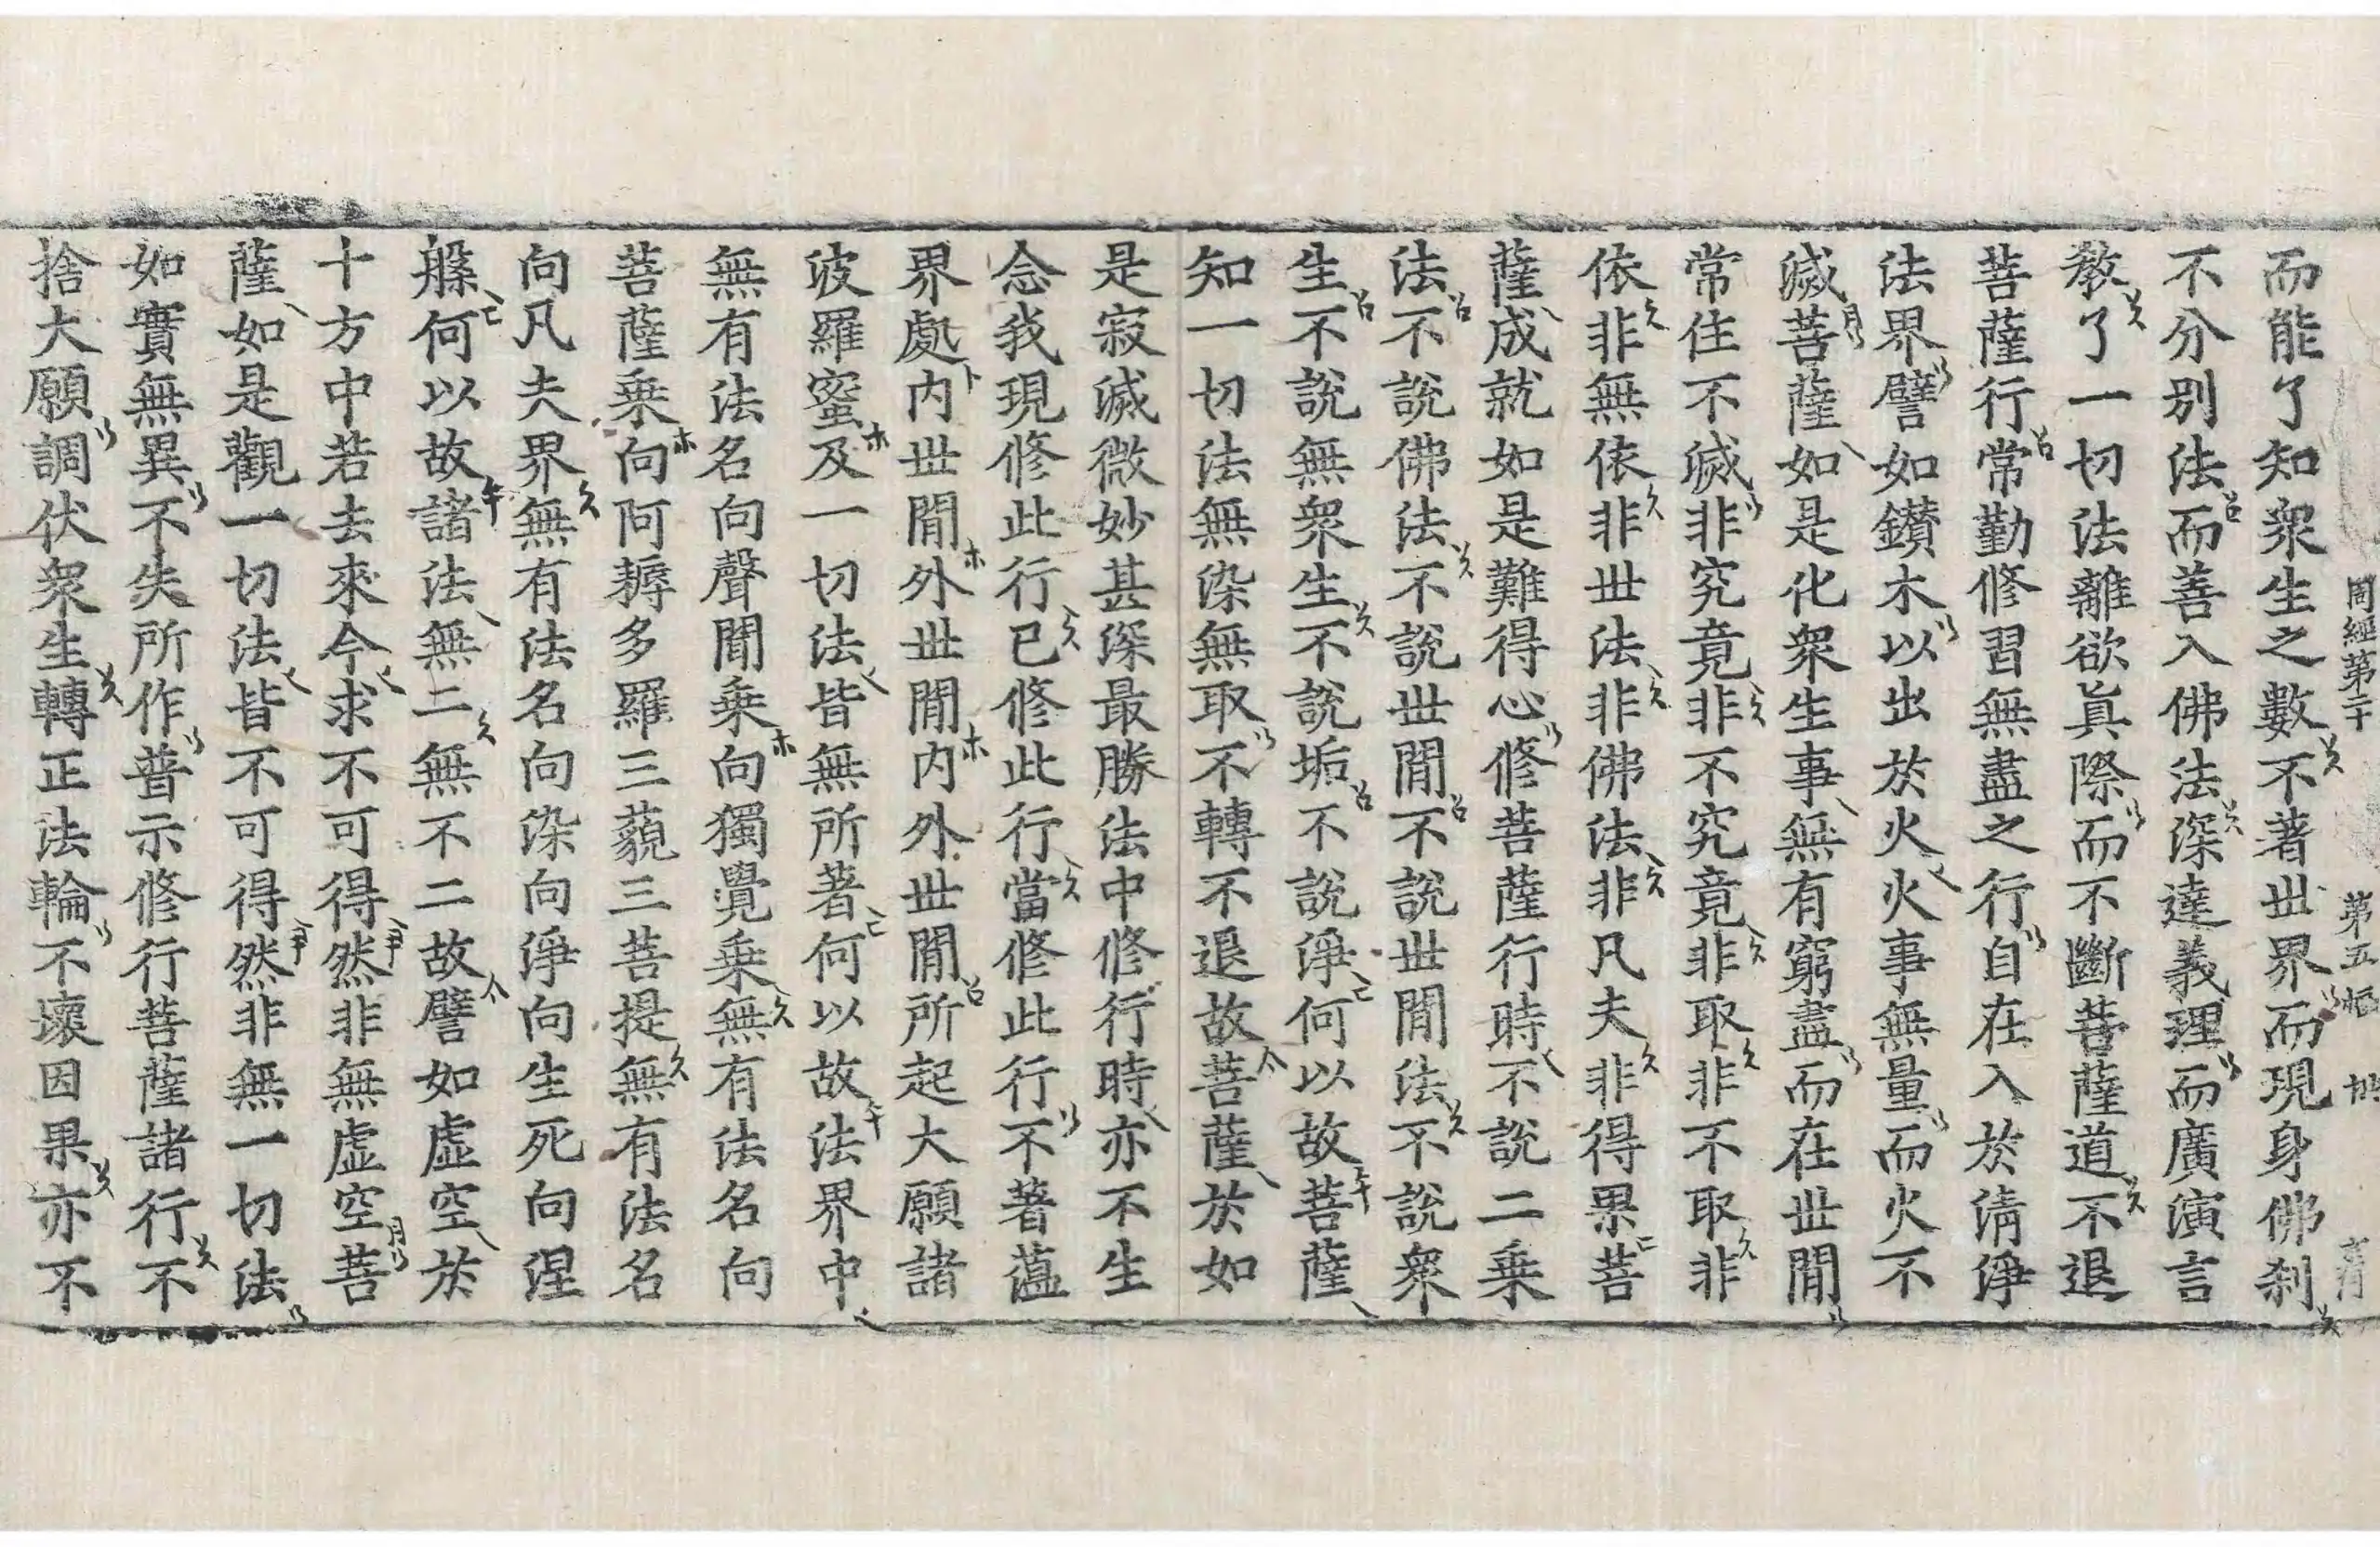 周經第二十 第五幅
而能了知衆生之數不著世界而現身佛刹
不分別法而善入佛法深達義理而廣演言
教了一切法離欲眞際而不斷菩薩道不退
菩薩行常勤修習無盡之行自在入於淸淨
法界譬如鑚木以出於火火事無量而火不
滅菩薩如是化衆生事無有窮盡而在世間
常住不滅非究竟非不究竟非取非不取非
依非無依非世法非佛法非凡夫非得果菩
薩成就如是難得心修菩薩行時不說二乘
法不說佛法不說世間不說世間法不說衆
生不說無衆生不說垢不說淨何以故菩薩
知一切法無染無取不轉不退故菩薩於如
是寂滅微妙甚深最勝法中修行時亦不生
念我現修此行已修此行當修此行不著蘊
界處內世間外世間內外世間所起大願諸
波羅蜜及一切法皆無所著何以故法界中
無有法名向聲聞乘向獨覺乘無有法名向
菩薩乘向阿耨多羅三藐三菩提無有法名
向凡夫界無有法名向染向淨向生死向涅
槃何以故諸法無二無不二故譬如虛空於
十方中若去來今求不可得然非無虛空菩
薩如是觀一切法皆不可得然非無一切法
如實無異不失所作普示修行菩薩諸行不
捨大願調伏衆生轉正法輪不壞因果亦不